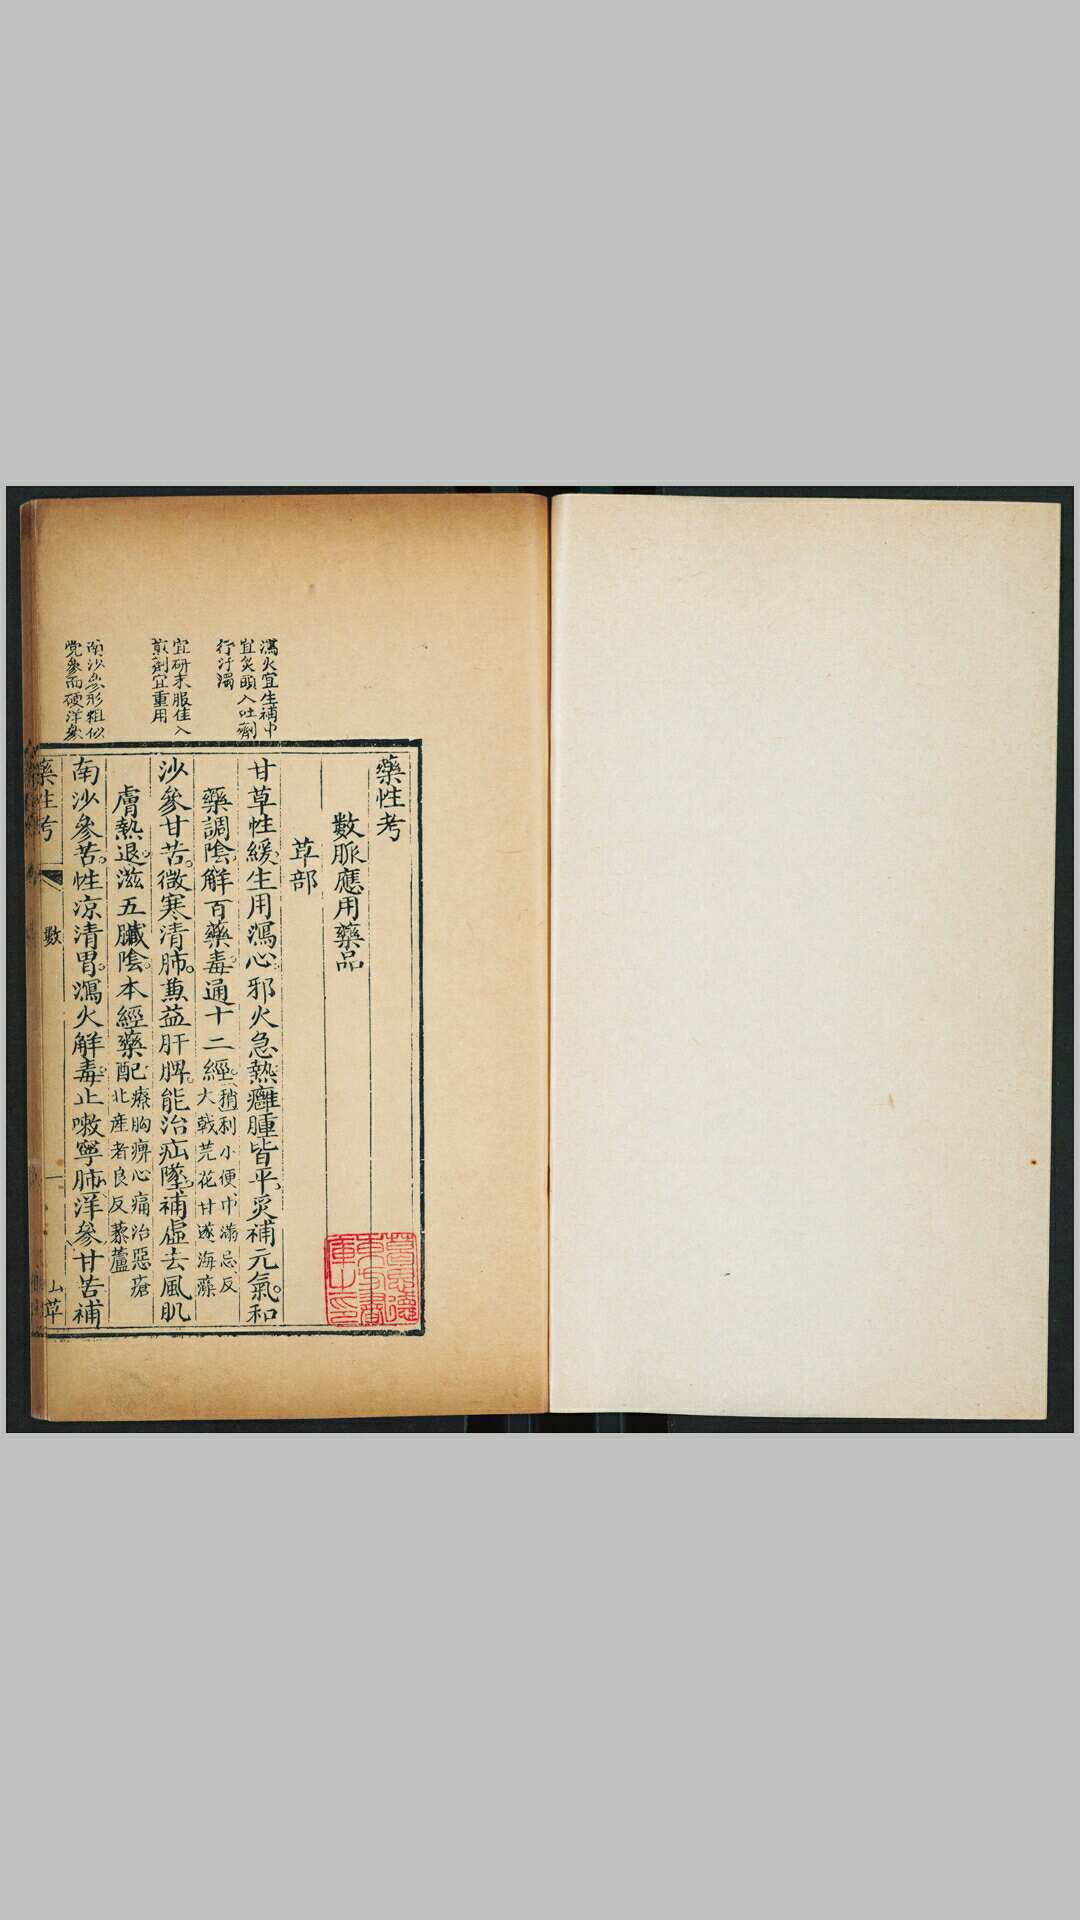 瀉火宜生補中
宜炙頭入吐劑
行汙濁
宜研末服佳入
煎劑宜重用
南沙參形粗似
党參而硬洋參
藥性考
數脈應用藥品
草部
甘草性緩生用瀉心邪火急熱癰腫皆平炙補元氣和
藥調陰解百藥毒通十二經稍利小便中滿忌反
大戟芫花甘遂海藻
沙參甘苦微寒清肺蒸益肝脾能治疝墜補虛去風肌
膚熱退滋五臟陰本經藥配療胸痹心痛治惡瘡
北產者良反藜蘆
南沙參苦性凉清胃瀉火解毒止嗽寧肺洋參甘苦補
藥性考 數 一 山草